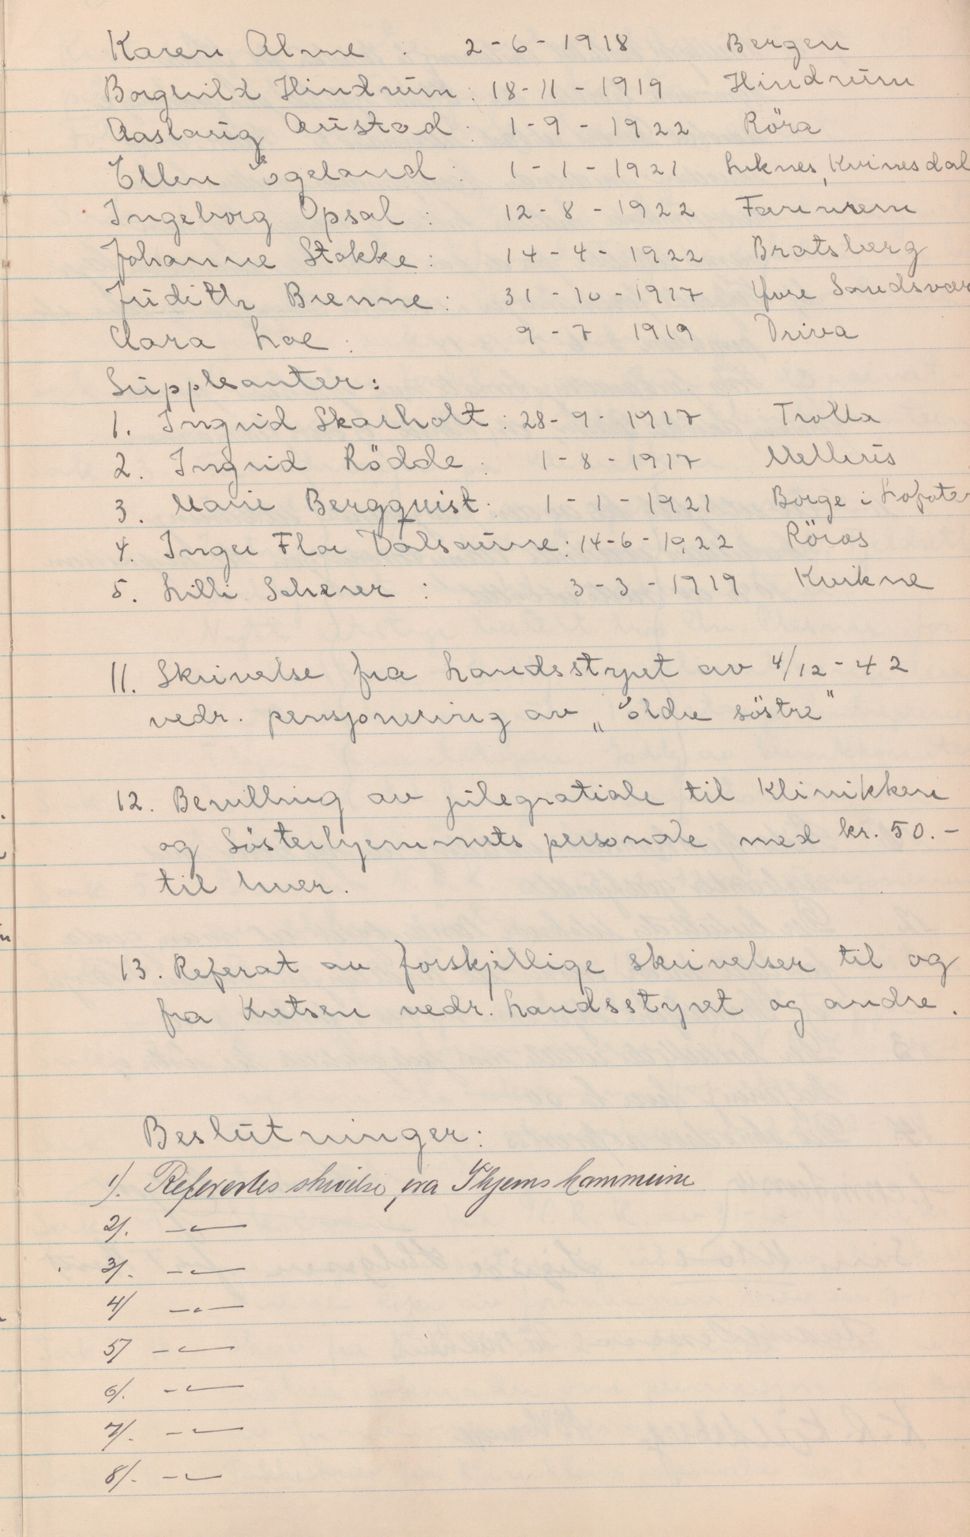 Karen Alme : 2-6-1918 Bergen
Borghild Hindrum: 18-11-1919 Hindrum
Aaslaug Austad: 1-9-1922 Röra
Ellen Egeland: 1-1-1921 Liknes, Kvinesdal
Ingeborg Opsal: 12-8-1922 Fannrem
Johanne Stokke: 14-4-1922 Bratsberg
Judith Brenne: 31-10-1917 Øvre Sandsvær
Clara Loe: 9-7 1919 Driva
Suppleanter:
1. Ingrid Skarholt: 28-9-1917 Trolla
2. Ingrid Rödde: 1-8-1917 Melhus
3. Marie Bergquist: 1-1-1921 Borge i Lofoten
4. Inger Flor Valsaune: 14-6-1922 Röros
5. Lilli Schever: 3-3-1919 Kvikne
11. Skrivelse fra Landsstyret av 4/12-42
vedr. pensjonering av „eldre söstre"
12. Bevillning av julegratiale til Klinikken
og Sösterhjemmets personale med kr. 50.-
til hver.
13. Referat av forskjellige skrivelser til og
fra Kretsen vedr. Landsstyret og andre.
Beslutninger:
1). Referertes skrivelse fra Skjerns kommune
2). -"-
3). -"-
4) -"-
5) -"-
6). -"-
7). -"-
8). -"-